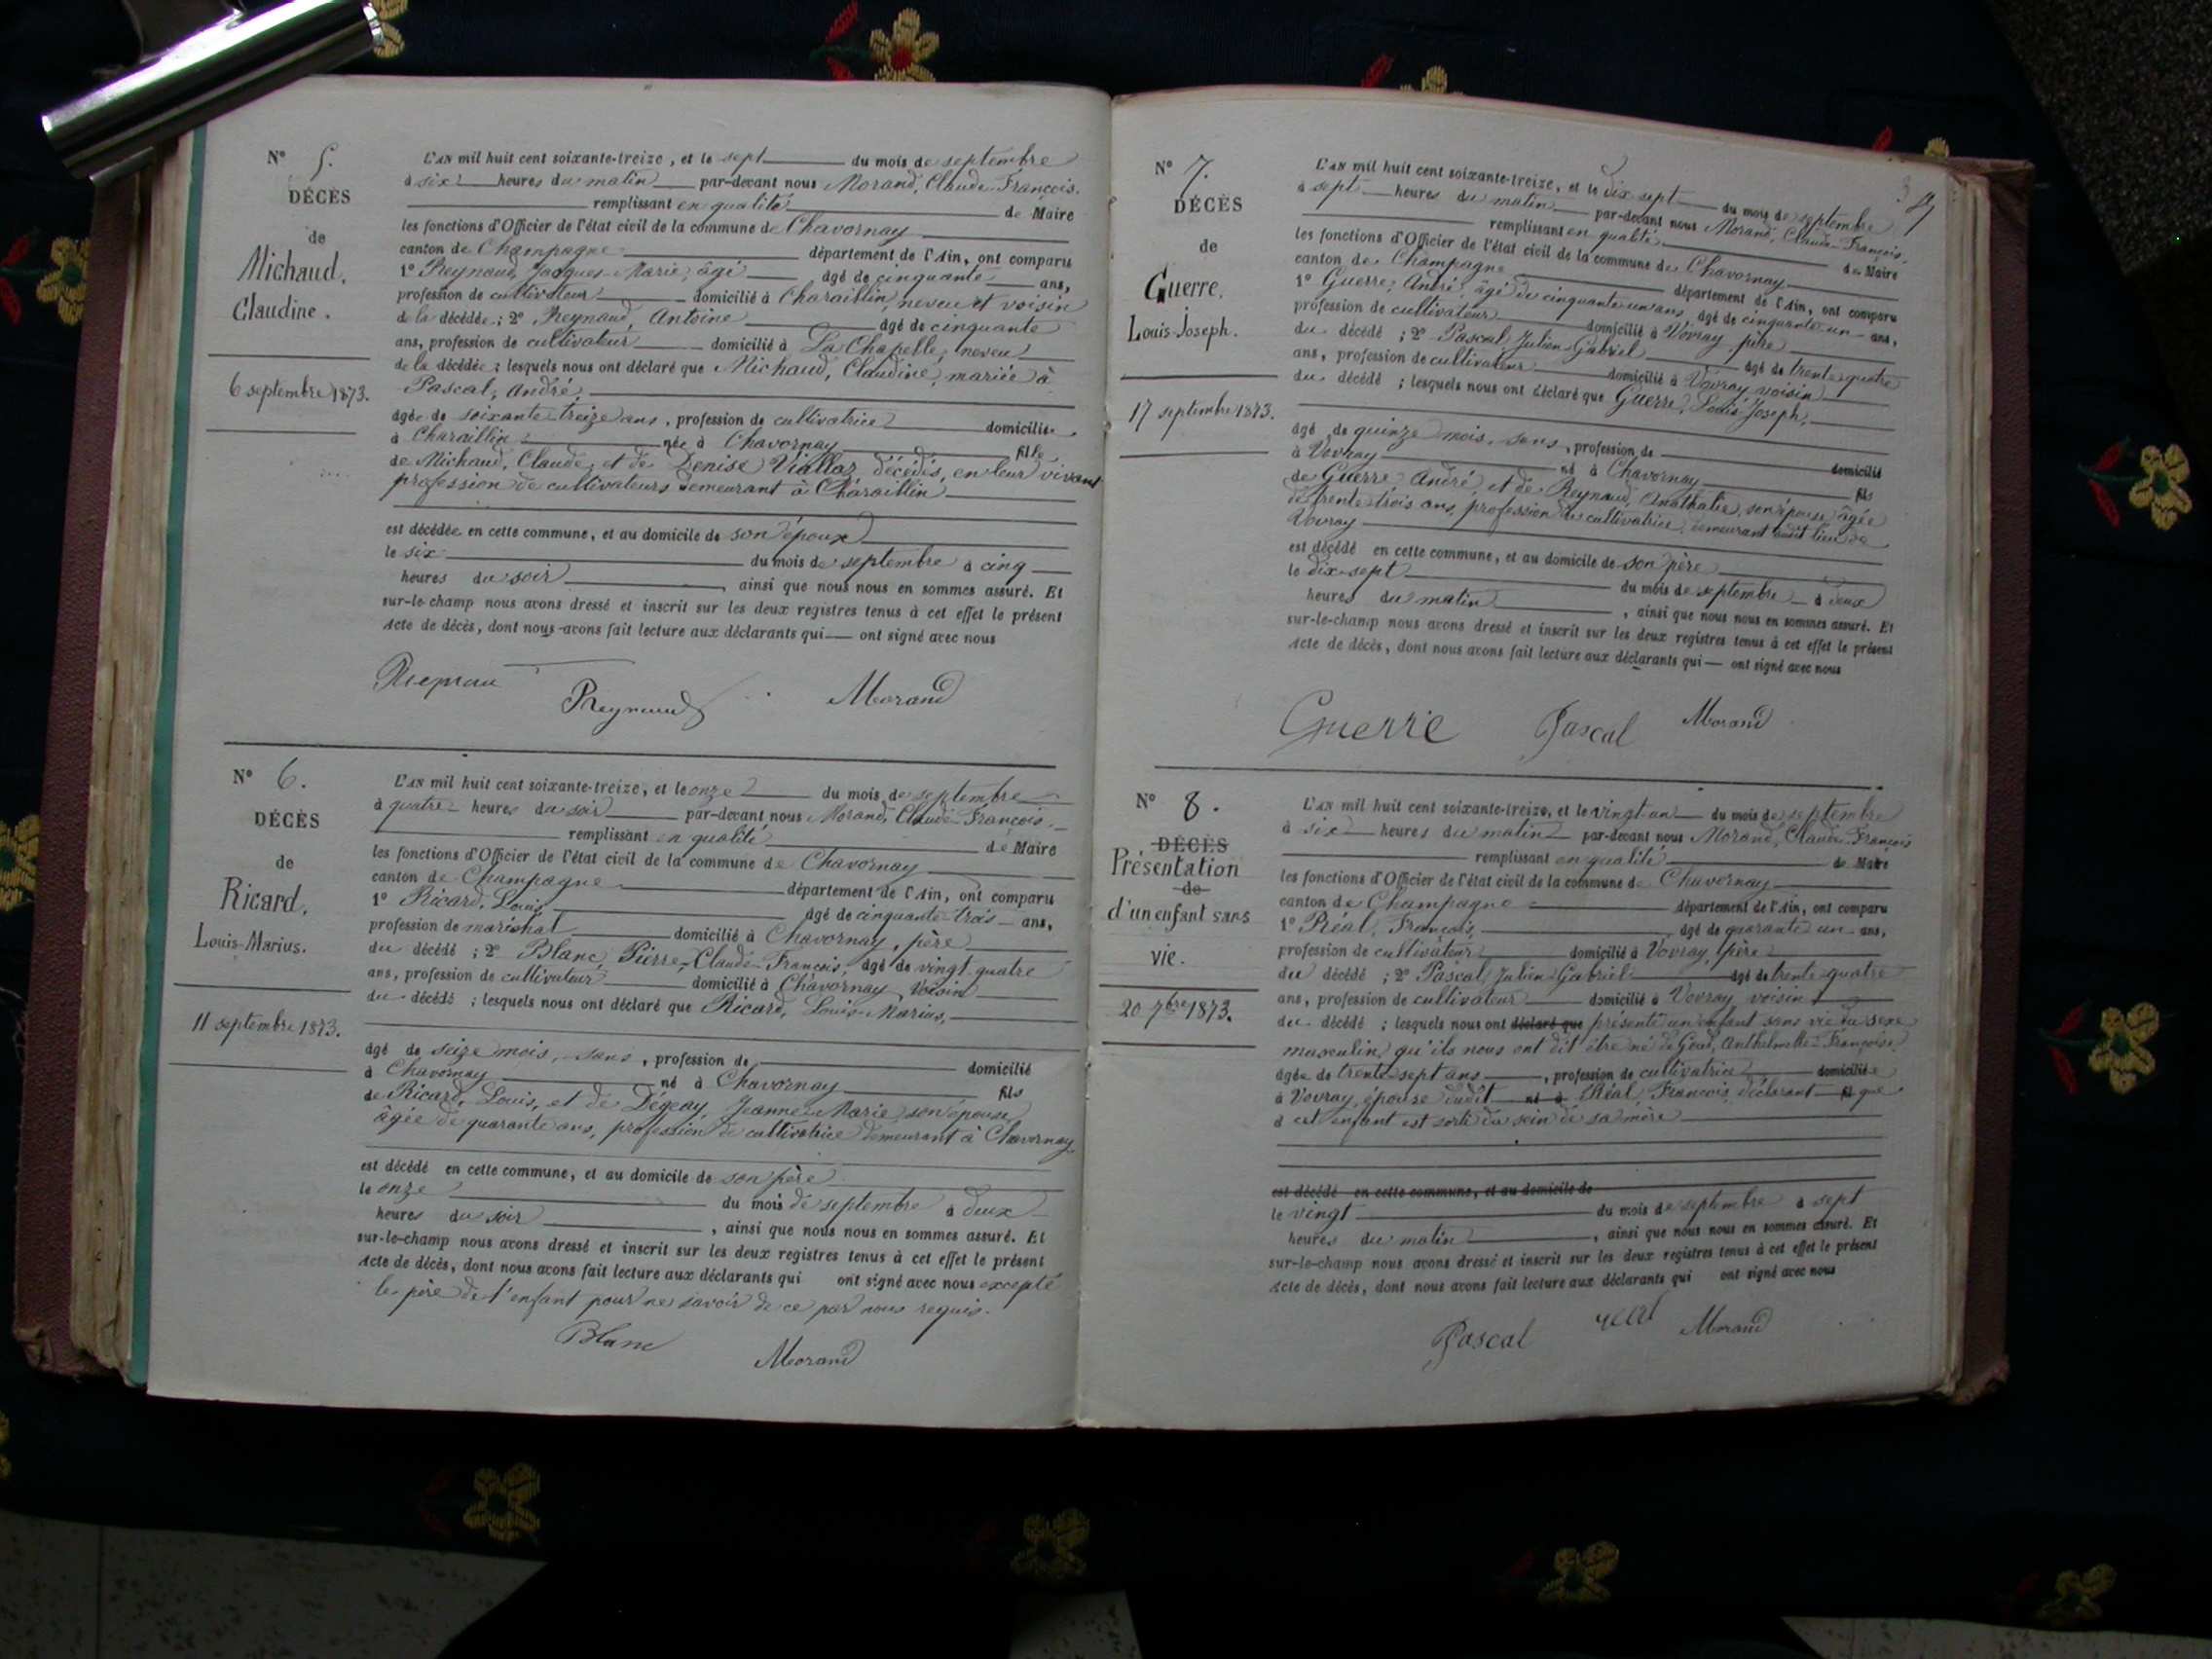 N° 5.
DÉCÈS
de
Michaud,
Claudine.
6 septembre 1873.
L'AN mil huit cent soixante-treize, et le sept du mois de septembre
à six heures du matin par-devant nous Morand, Claude-François.
remplissant en qualité de Maire
les fonctions d'Officier de l'état civil de la commune de Chavornay
canton de Champagne département de l'Ain, ont comparu
1° Reynaud, Jacques-Marie, âgé âgé de cinquante ans,
profession de cultivateur domicilié à Charaillin, neveu et voisin
de la décédée; 2° Reynaud, Antoine âgé de cinquante
ans, profession de cultivateur domicilié à La Chapelle, neveu
de la décédée; lesquels nous ont déclaré que Michaud, Claudine, mariée à
Pascal, André,
âgée de soixante-treize ans, profession de cultivatrice domiciliée
à Charaillin née à Chavornay fille
de Michaud, Claude, et de Denise Viallaz, décédés, en leur vivant
profession de cultivateurs demeurant à Charaillin
est décédée en cette commune, et au domicile de son époux
le six du mois de septembre à cinq
heures du soir, ainsi que nous nous en sommes assuré. Et
sur-le-champ nous avons dressé et inscrit sur les deux registres tenus à cet effet le présent
Acte de décès, dont nous avons fait lecture aux déclarants qui ont signé avec nous
Reynaud Morand
N° 6.
DÉCÈS
de
Ricard,
Louis-Marius.
11 septembre 1873.
L'AN mil huit cent soixante-treize, et le onze du mois de septembre
à quatre heures du soir par-devant nous Morand, Claude-François,
remplissant en qualité de Maire
les fonctions d'Officier de l'état civil de la commune de Chavornay
canton de Champagne département de l'Ain, ont comparu
1° Ricard, Louis, âgé de cinquante-trois ans,
profession de maréchal domicilié à Chavornay, père
du décédé; 2° Blanc, Pierre-Claude-François, âgé de vingt-quatre
ans, profession de cultivateur domicilié à Chavornay, voisin
du décédé; lesquels nous ont déclaré que Ricard, Louis-Marius,
âgé de seize mois, sans, profession de domicilié
à Chavornay né à Chavornay fils
de Ricard, Louis, et de Dégeay, Jeanne-Marie son épouse,
âgée de quarante ans, profession de cultivatrice demeurant à Chavornay
est décédé en cette commune, et au domicile de son père
le onze du mois de septembre à deux
heures du soir, ainsi que nous nous en sommes assuré. Et
sur-le-champ nous avons dressé et inscrit sur les deux registres tenus à cet effet le présent
Acte de décès, dont nous avons fait lecture aux déclarants qui ont signé avec nous excepté
le père de l'enfant pour ne savoir de ce par nous requis.
Blanc Morand
N° 7.
DÉCÈS
de
Guerre,
Louis-Joseph.
17 septembre 1873.
L'AN mil huit cent soixante-treize, et le dix-sept du mois de septembre
à sept heures du matin par-devant nous Morand, Claude-François,
remplissant en qualité de Maire
les fonctions d'Officier de l'état civil de la commune de Chavornay
canton de Champagne département de l'Ain, ont comparu
1° Guerre, André, âgé de cinquante un ans, âgé de cinquante-un ans,
profession de cultivateur domicilié à Vovray père
du décédé; 2° Pascal Julien-Gabriel âgé de trente-quatre
ans, profession de cultivateur domicilié à Vovray, voisin
du décédé; lesquels nous ont déclaré que Guerre, Louis-Joseph,
âgé de quinze mois, sans, profession de domicilié
à Vovray né à Chavornay fils
de Guerre André, et de Reynaud, Anathalie, son épouse âgée
de trente-trois ans, profession de cultivatrice, demeurant audit lieu de
Vovray
est décédé en cette commune, et au domicile de son père
le dix-sept du mois de septembre à deux
heures du matin, ainsi que nous nous en sommes assuré. Et
sur-le-champ nous avons dressé et inscrit sur les deux registres tenus à cet effet le présent
Acte de décès, dont nous avons fait lecture aux déclarants qui ont signé avec nous
Guerre Pascal Morand
N° 8.
DÉCÈS
Présentation
de
d'un enfant sans
vie.
20 7bre 1873.
L'AN mil huit cent soixante-treize, et le vingt-un du mois de septembre
à six heures du matin par-devant nous Morand, Claude-François
remplissant en qualité de Maire
les fonctions d'Officier de l'état civil de la commune de Chavornay
canton de Champagne département de l'Ain, ont comparu
1° Réal, François, âgé de quarante-un ans,
profession de cultivateur domicilié à Vovray, père
du décédé; 2° Pascal, Julien-Gabriel âgé de trente-quatre
ans, profession de cultivateur domicilié à Vovray, voisin
du décédé; lesquels nous ont déclaré que présenté un enfant sans vie du sexe
masculin, qu'ils nous ont dit être né de Anthelmette-Françoise
âgée de trente-sept ans, profession de cultivatrice domiciliée
à Vovray, épouse dudit né à Réal, François, déclarant fil que
à cet enfant est sorti du sein de sa mère
est décédé en cette commune, et au domicile de
le vingt du mois de septembre à sept
heures du matin, ainsi que nous nous en sommes assuré. Et
sur-le-champ nous avons dressé et inscrit sur les deux registres tenus à cet effet le présent
Acte de décès, dont nous avons fait lecture aux déclarants qui ont signé avec nous
Pascal real Morand